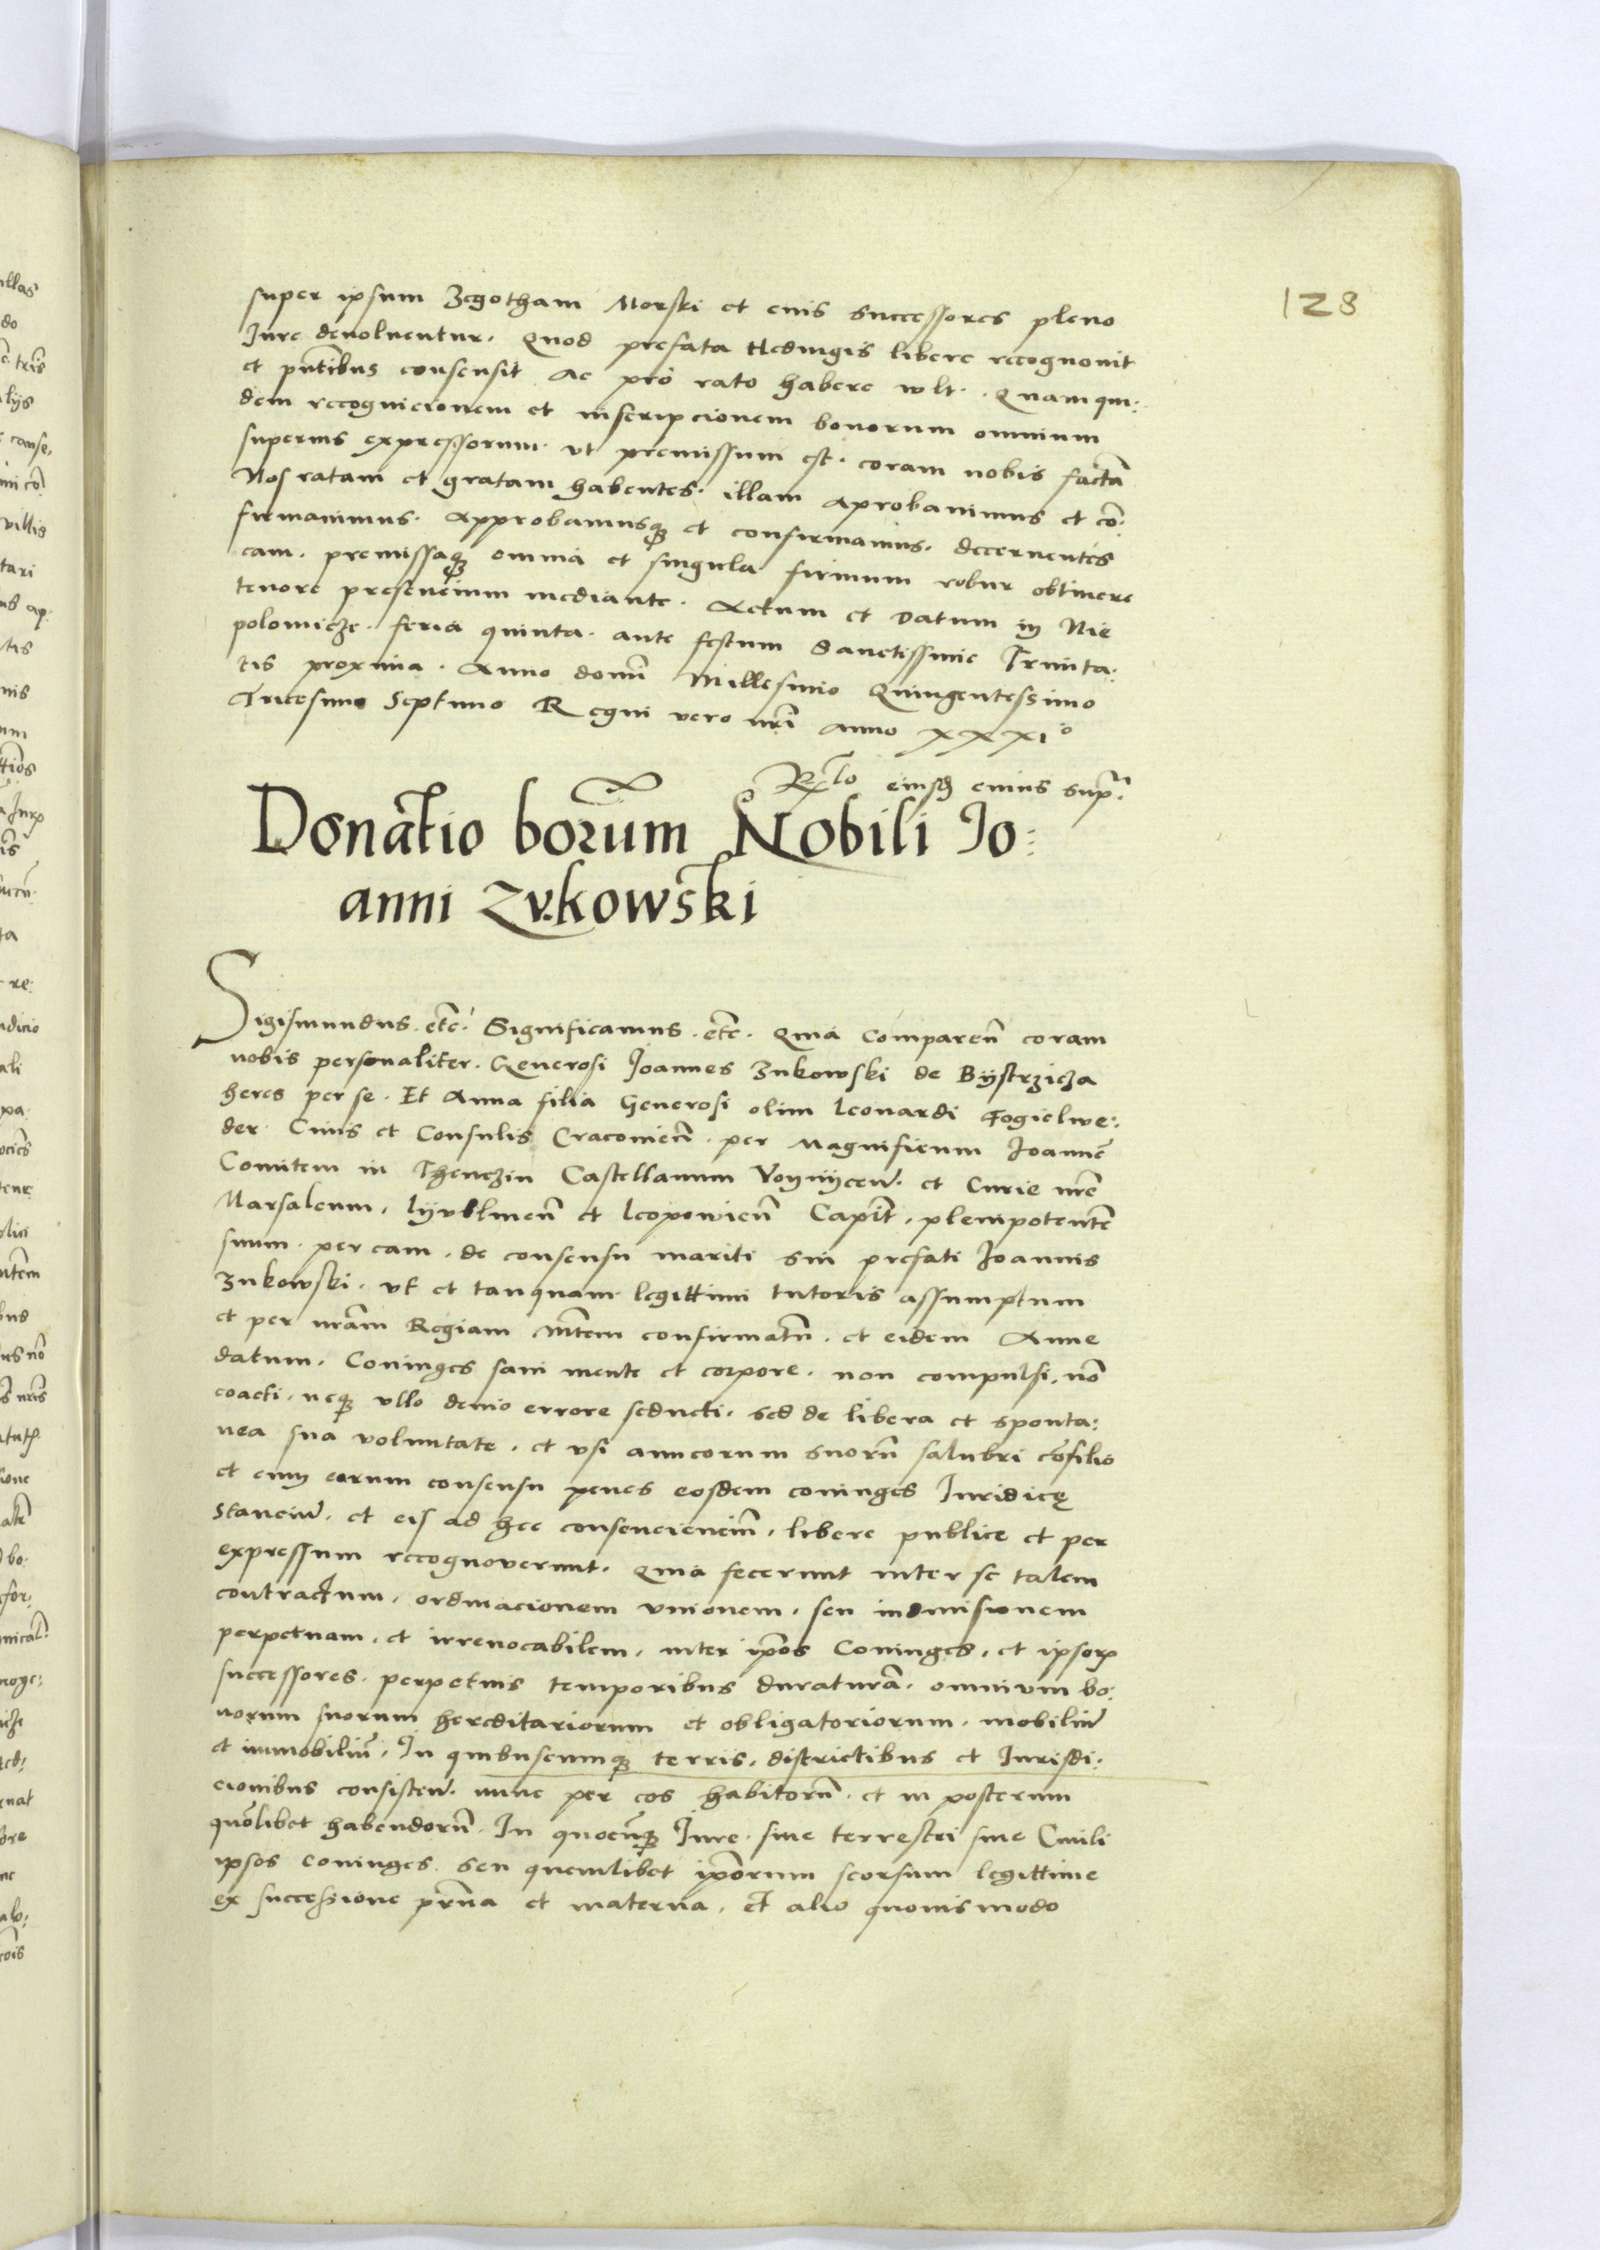 128
super ipsum Zegotham Morski et euis successores pleno
Iure deuoluentur. Quod prefata Heduigis libere recognouit
et pntibus consensit ac pro rato habere wlt. Quamqui:
dem recognicionem et inscripcionem bonorum omnium
superius expressorum. vt premissum est. coram nobis factā
Nos ratam et gratam habentes. illam aprobauimus et cō:
firmauimus. Approbamusq et confirmamus. decernentes
eam. premissaq omnia et singula firmum robur obtinere
tenore presencium mediante. Actum et Datum in Nie
polomicze. feria quinta. ante festum Sanctissime Trinita:
tis proxima. Anno domi Millesimo Quingentessimo
Tricesimo Septimo Regni vero nri anno XXXIo
Rlo eiusd cuius supra.
Donatio borum Nobili Io:
anni Zvkowski
Sigismundus. etc. Significamus. etc. Quia Comparen coram
nobis personaliter. Generosi Ioannes Zukowski de Bystrzicza
heres per se. Et Anna filia Generosi olim Leonardi Fogielwe:
der Ciuis et Consulis Cracouien. per Magnificum Ioannē
Comitem in Thenczin Castellanum Voynycen. et Curie nre
Marsalcum, lyvblinen et Leopowien Capit. plenipotentē
suum. per eam. de consensu mariti sui prefati Ioannis
Zukowski. vt et tanquam legittimi tutoris assumptum
et per nram Regiam Mtem confirmatu. et eidem Anne
datum. Coniuges sani mente et corpore. non compulsi. nō
coacti. neq vllo deuio errore seducti. sed de libera et sponta:
nea sua voluntate. et vsi amicorum suoru salubri cōsilio
et cum earum consensu penes eosdem coniuges Iuridicę
stanciu. et eis ad hec consenciencium. libere publice et per
expressum recognoverunt. Quia fecerunt inter se talem
contractum. ordinacionem vnionem. seu indiuisionem
perpetuam. et irreuocabilem. inter ipos Coniuges. et ipsorum
successores. perpetuis temporibus duraturā. omnium bo:
norum suorum hereditariorum et obligatoriorum. mobiliū
et immobiliū. In quibuscumq terris. districtibus et Iurisdi:
cionibus consisten. nunc per eos habitoru. et in posterum
quōlibet habendoru. In quocūq Iure. siue terrestri siue Ciuili
ipsos coniuges. seu quemlibet ipōrum seorsum legittime
ex successione prna et materna. et alio quouismodo